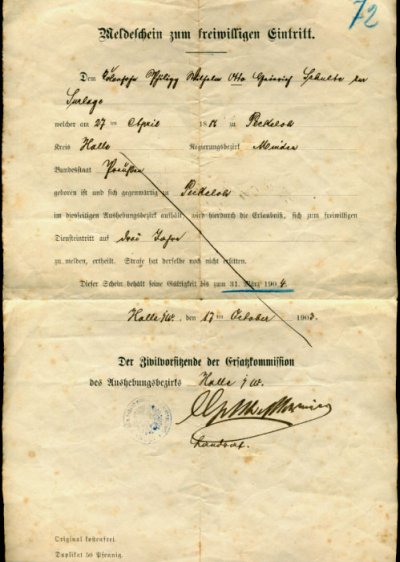 72
Meldeschein zum freiwilligen Eintritt.
Dem Philipp Wilhelm Otto Heinrich Schulte zur
Surlage
welcher am 27ten April 18 zu Peckeloh
Kreis Halle Regierungsbezirk Minden
Bundesstaat Preußen
geboren ist und sich gegenwärtig zu Peckeloh
im diesseitigen Aushebungsbezirk aufhält, wird hierdurch die Erlaubniß, sich zum freiwilligen
Diensteintritt auf drei Jahre
zu melden, ertheilt. Strafe hat derselbe noch nicht erlitten.
Dieser Schein behält seine Gültigkeit bis zum 31. März 1904.
Halle i/W., den 17ten October 1903.
Der Zivilvorsitzende der Ersatzkommission
des Aushebungsbezirks Halle i/W.
Landrat.
Original kostenfrei.
Duplikat 50 Pfennig.